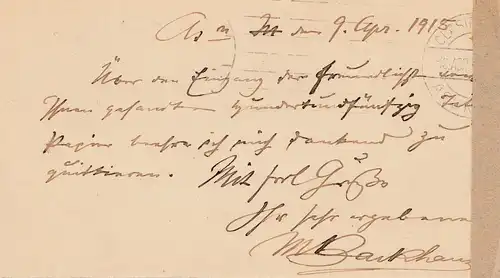 den 9. Apr. 1915
Über den Eingang der freundlichst von
Ihnen gesandten hundertundfünfzig
Papier beehre ich mich dankend zu
quittieren. Mit frdl Gruße
Ihr sehr ergebene